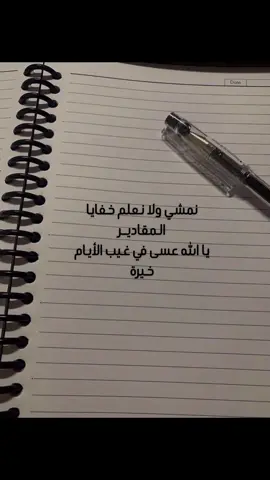 نمشي ولا نعلم خفايا
المقاديـر
يا الله عسى في غيب الأيام
خيرة